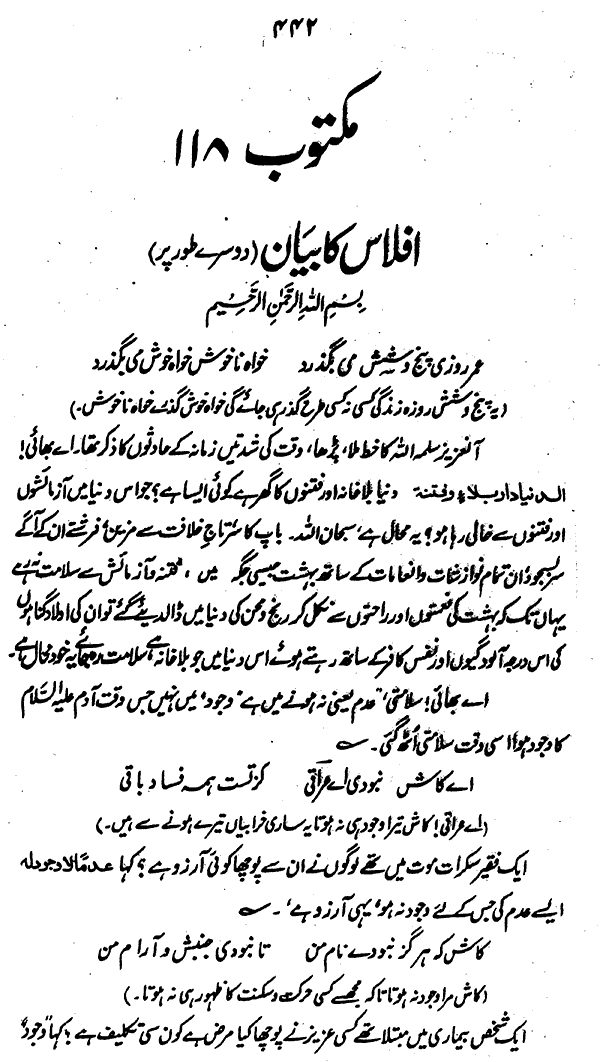 ۴۴۲
مکتوب ۱۱۸
افلاس کا بیان (دوسرے طور پر)
بِسْمِ اللّٰہِ الرَّحْمٰنِ الرَّحِیْم
عمر روزی پنج و شش می بگذرد خواہ ناخوش خواہ خوش می بگذرد
(یہ پنج و شش روزہ زندگی کسی نہ کسی طرح گذر ہی جائے گی خواہ خوش گذرے خواہ ناخوش۔)
آنعزیز سلمہ اللہ کا خط ملا، پڑھا، وقت کی شدتیں زمانہ کے حادثوں کا ذکر تھا۔ اے بھائی!
الدنیا دار بلاء وفتنۃ دنیا بلا خانہ اور فتنوں کا گھر ہے کوئی ایسا ہے؟ جو اس دنیا میں آزمائشوں
اور فتنوں سے خالی رہا ہو؟ یہ محال ہے، سبحان اللہ۔ باپ کا سر تاج خلافت سے مزین، فرشتے ان کے آگے
سربسجود، ان تمام نوازشات و انعامات کے ساتھ بہشت جیسی جگہ میں، فتنہ و آزمائش سے سلامت نہ رہے
یہاں تک کہ بہشت کی نعمتوں اور راحتوں سے نکل کر رنج و محن کی دنیا میں ڈالدیئے گئے تو ان کی اولاد گناہوں
کی اس درجہ آلودگیوں اور نفس کافر کے ساتھ رہتے ہوئے اس دنیا میں جو بلا خانہ ہے سلامت رہ جائے یہ خود محال ہے۔
اے بھائی! سلامتی، عدم یعنی نہ ہونے میں ہے، وجود، میں نہیں جس وقت آدم علیہ السّلام
کا وجود ہوا اسی وقت سلامتی اُٹھ گئی۔
اے کاش نبودی اے عراقی کز تست ہمہ فساد باقی
(اے عراقی! کاش تیرا وجود ہی نہ ہوتا یہ ساری خرابیاں تیرے ہونے سے ہیں۔)
ایک فقیر سکرات موت میں تھے لوگوں نے ان سے پوچھا کوئی آرزو ہے؟ کہا عدمًا لا وجود لہ
ایسے عدم کی جس کے لئے وجود نہ ہو، یہی آرزو ہے،۔
کاش کہ ہرگز نبودے نام من تا نبودی جنبش و آرام من
(کاش مرا وجود نہ ہوتا تا کہ مجھ سے کسی حرکت و سکنت کا ظہور ہی نہ ہوتا۔)
ایک شخص بیماری میں مبتلا تھے کسی عزیز نے پوچھا کیا مرض ہے کون سی تکلیف ہے؟ کہا "وجود"